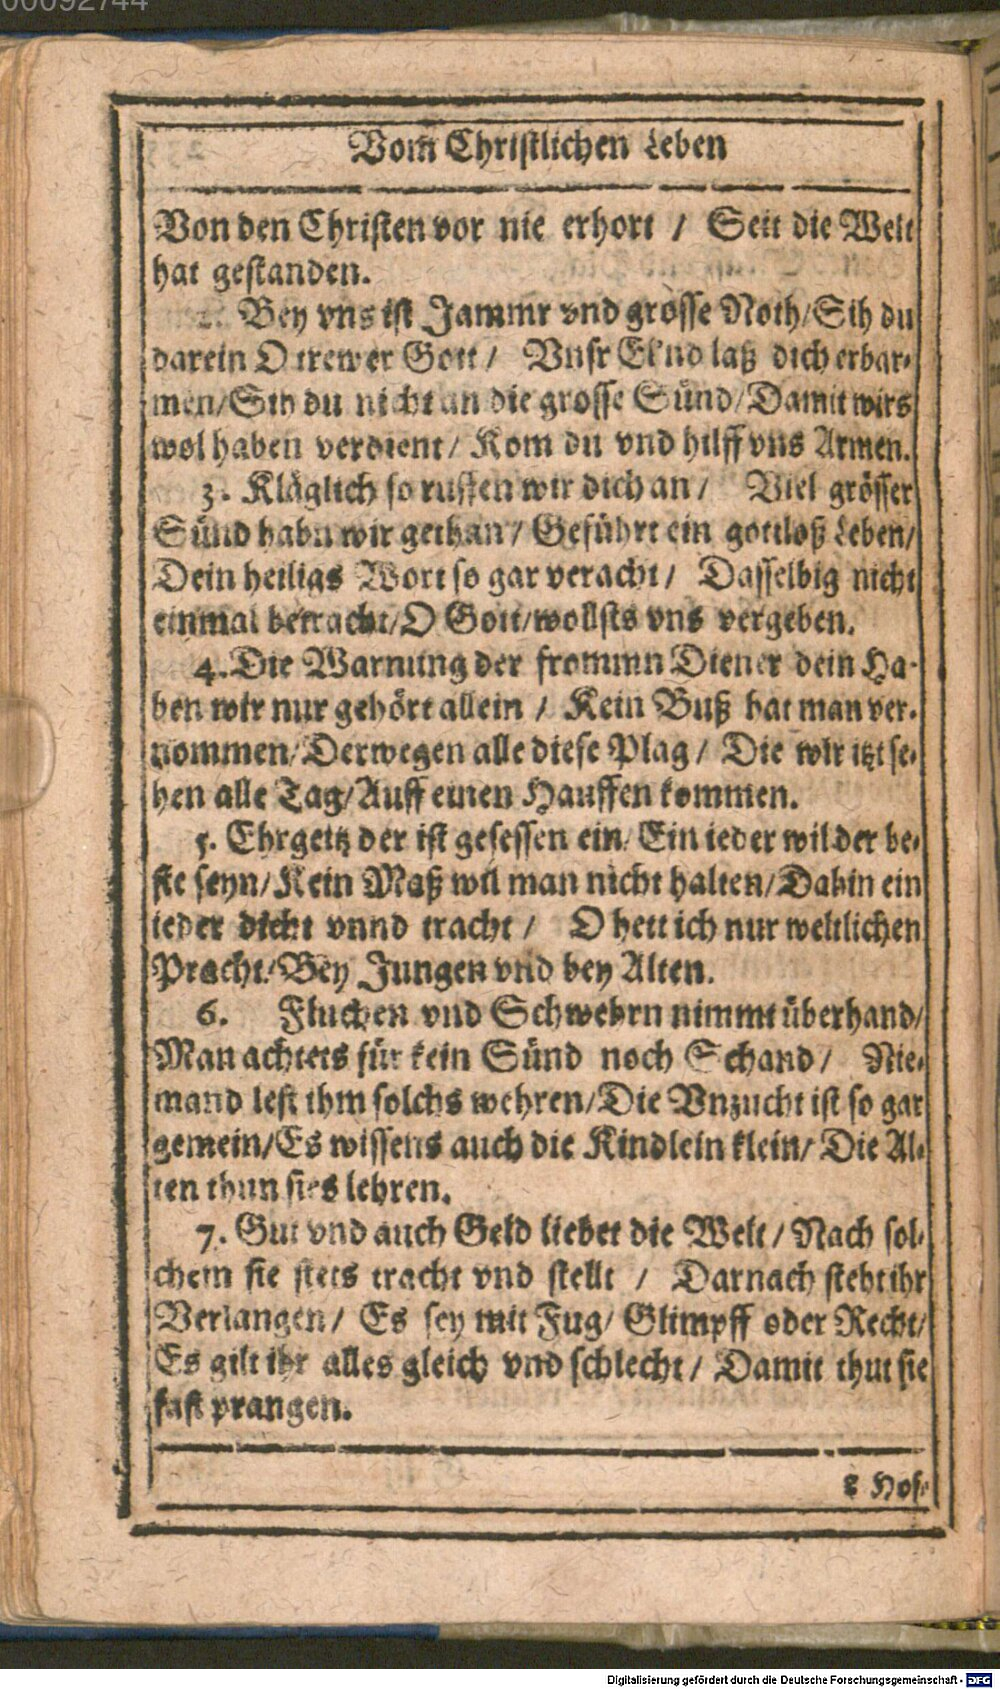 00092744
Vom Christlichen Leben
Von den Christen vor nie erhort / Seit die Welt
hat gestanden.
2. Bey vns ist Jammr vnd grosse Noth/Sih du
darein O trewer Gott / Vnsr Elnd laß dich erbar-
men/Sih du nicht an die grosse Sünd/Damit wirs
wol haben verdient/ Kom du vnd hilff vns Armen.
3. Kläglich so ruffen wir dich an / Viel grösser
Sünd habn wir gethan / Geführt ein gottloß Leben/
Dein heiligs Wort so gar veracht / Dasselbig nicht
einmal betracht/O Gott/wollsts vns vergeben.
4. Die Warnung der frommn Diener dein Ha-
ben wir nur gehört allein / Kein Buß hat man ver-
nommen/Derwegen alle diese Plag / Die wir itzt se-
hen alle Tag/Auff einen Hauffen kommen.
5. Ehrgeitz der ist gesessen ein/Ein ieder wil der be-
ste seyn/Kein Maß wil man nicht halten/Dahin ein
ieder dicht vnnd tracht / O hett ich nur weltlichen
Pracht/Bey Jungen vnd bey Alten.
6. Fluchen vnd Schwehrn nimmt überhand/
Man achtets für kein Sünd noch Schand / Nie-
mand lest ihm solchs wehren/Die Vnzucht ist so gar
gemein/Es wissens auch die Kindlein klein/ Die Al-
ten thun sies lehren.
7. Gut vnd auch Geld liebet die Welt / Nach sol-
chem sie stets tracht vnd stellt / Darnach steht ihr
Verlangen / Es sey mit Fug/ Glimpff oder Recht/
Es gilt ihr alles gleich vnd schlecht / Damit thut sie
fast prangen.
8 Hof-
Digitalisierung gefördert durch die Deutsche Forschungsgemeinschaft - DFG